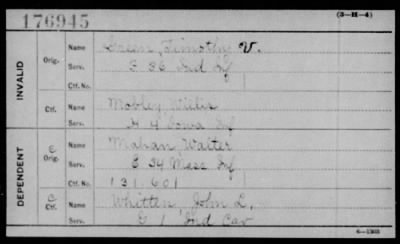 176945
(3-H-4)
INVALID
Orig.
Name Green, Timothy V.
Serv. G 36 Ind Inf
Ctf. No.
Ctf.
Name Mobley Willis
Serv. H 4 Iowa Inf
DEPENDENT
C
Orig.
Name Mahan Walter
Serv. E 34 Mass Inf
Ctf. No. 131,601
C
Ctf.
Name Whitten, John L.
Serv. G 1 Ind Cav